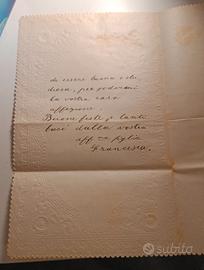 di essere buona e stu
diosa, per godermi
la vostra cara
affezione.
Buone feste e tanti
baci dalla vostra
aff.ma figlia
Francesca.
subito